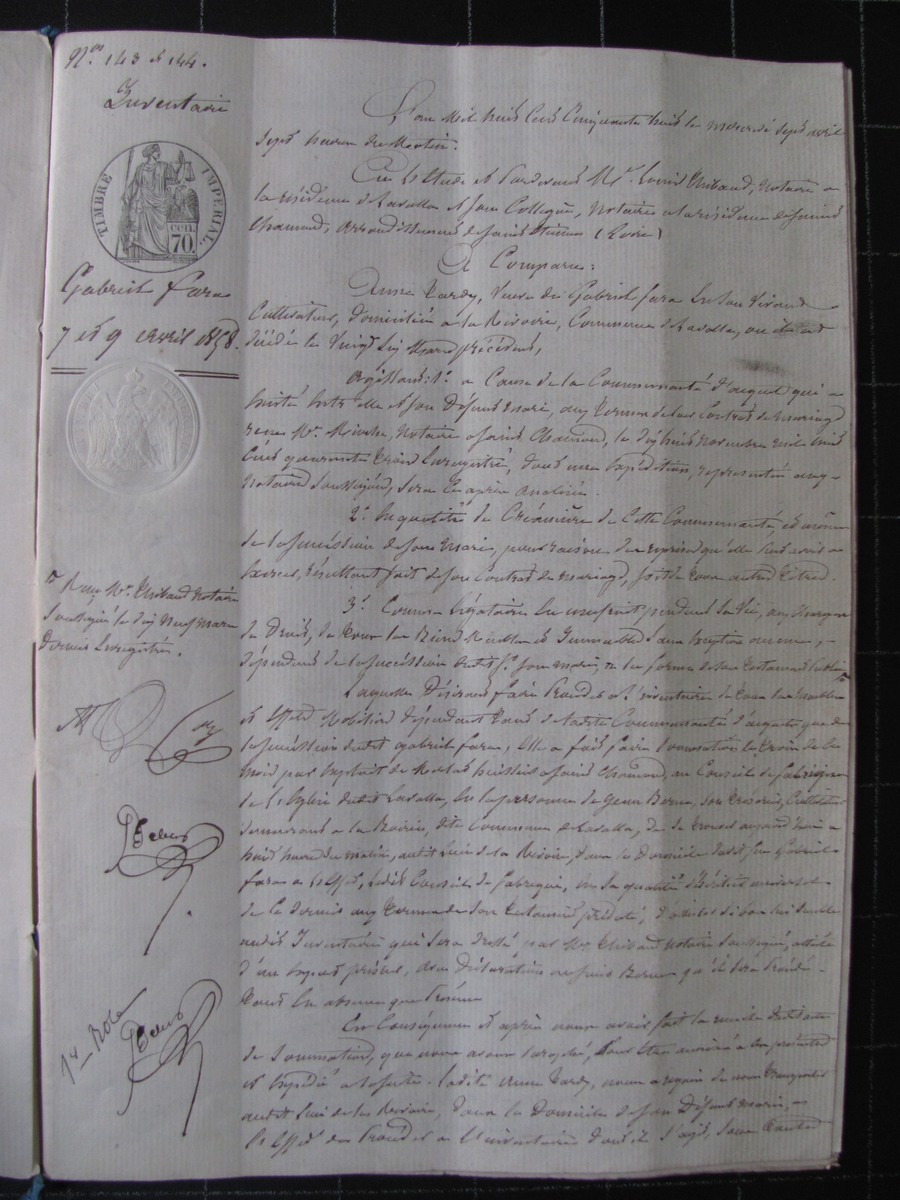 Nos. 143 et 144.
Inventaire
TIMBRE IMPÉRIAL.
CEN.
70.
Gabriel fara
7 et 9 avril 1858.
L'an Mil huit Cent Cinquante huit le mercredi sept avril
sept heures du Matin.
En l'Etude et Pardevant Me. Louis Thibaud, Notaire a
la résidence de Lavalla et son Collegue, Notaires a la résidence de Saint
Chamond, arrondissement de Saint Etienne (Loire)
A Comparu:
Anne Tardy, Veuve de Gabriel fara
Cultivateur, domiciliée a la Rivoire, Commune de Lavalla, ou il est
décédé le Vingt Mars précédent,
Agissant: 1o. a Cause de la Communauté d'acquet qui a
existé entre elle et son Défunt mari, aux termes de leur Contrat de mariage
recu Me. Notaire a Saint Chamond, le dix huit novembre mil huit
Cent quarante trois Enregistré, dont une Expédition, représentée aux
notaires Soussignés, sera Ci après analisée.
2o. En qualité de Créancière de Cette Communauté, et même
de la succession de son mari, pour raison des reprises qu'elle peut avoir a
Exercer, résultant soit de son Contrat de mariage, soit de tous autres titres.
3o. Comme légataire En usufruit pendant sa vie, aux charges
de Droit, de tous les Biens Meubles et Immeubles sans exception aucune,
dépendant de la succession dudit son mari, en la forme de son testament public
recu Me. Thibaud Notaire
Soussigné le dix Neuf mars
dernier Enregistré.
Laquelle Désirant faire procéder a l'inventaire de tous les meubles
et Effets Mobiliers dépendant tant de ladite Communauté d'acquets que de
la succession dudit Gabriel fara, Elle a fait faire sommation le trois de ce
mois par Exploit de huissier a Saint Chamond, au Conseil de fabrique
de l'Eglise dudit Lavalla, En la personne de son trésorier, Cultivateur
demeurant a la dite Commune de Lavalla, de se trouver aujourd'hui a
huit heures du matin, audit lieu de la Rivoire, dans le Domicile dudit feu Gabriel
fara a l'Effet, ledit Conseil de fabrique, En sa qualité d'héritier universel
de Ce dernier aux termes de son testament précité, d'assister si bon lui semble
audit Inventaire qui sera dressé par Me Thibaud notaire Soussigné, assisté
d'un Expert priseur, avec Déclaration qu'il sera procédé
tant En absence que présence
En Conséquence et après nous avoir fait la remise dudit acte
de Sommation, que nous avons
et Expédié a la suite. ladite Anne Tardy, nous a requis de nous transporter
audit lieu de la Rivoire, dans le Domicile de son Défunt mari,
a l'Effet de procéder a l'inventaire dont il s'agit,
1er Rôle